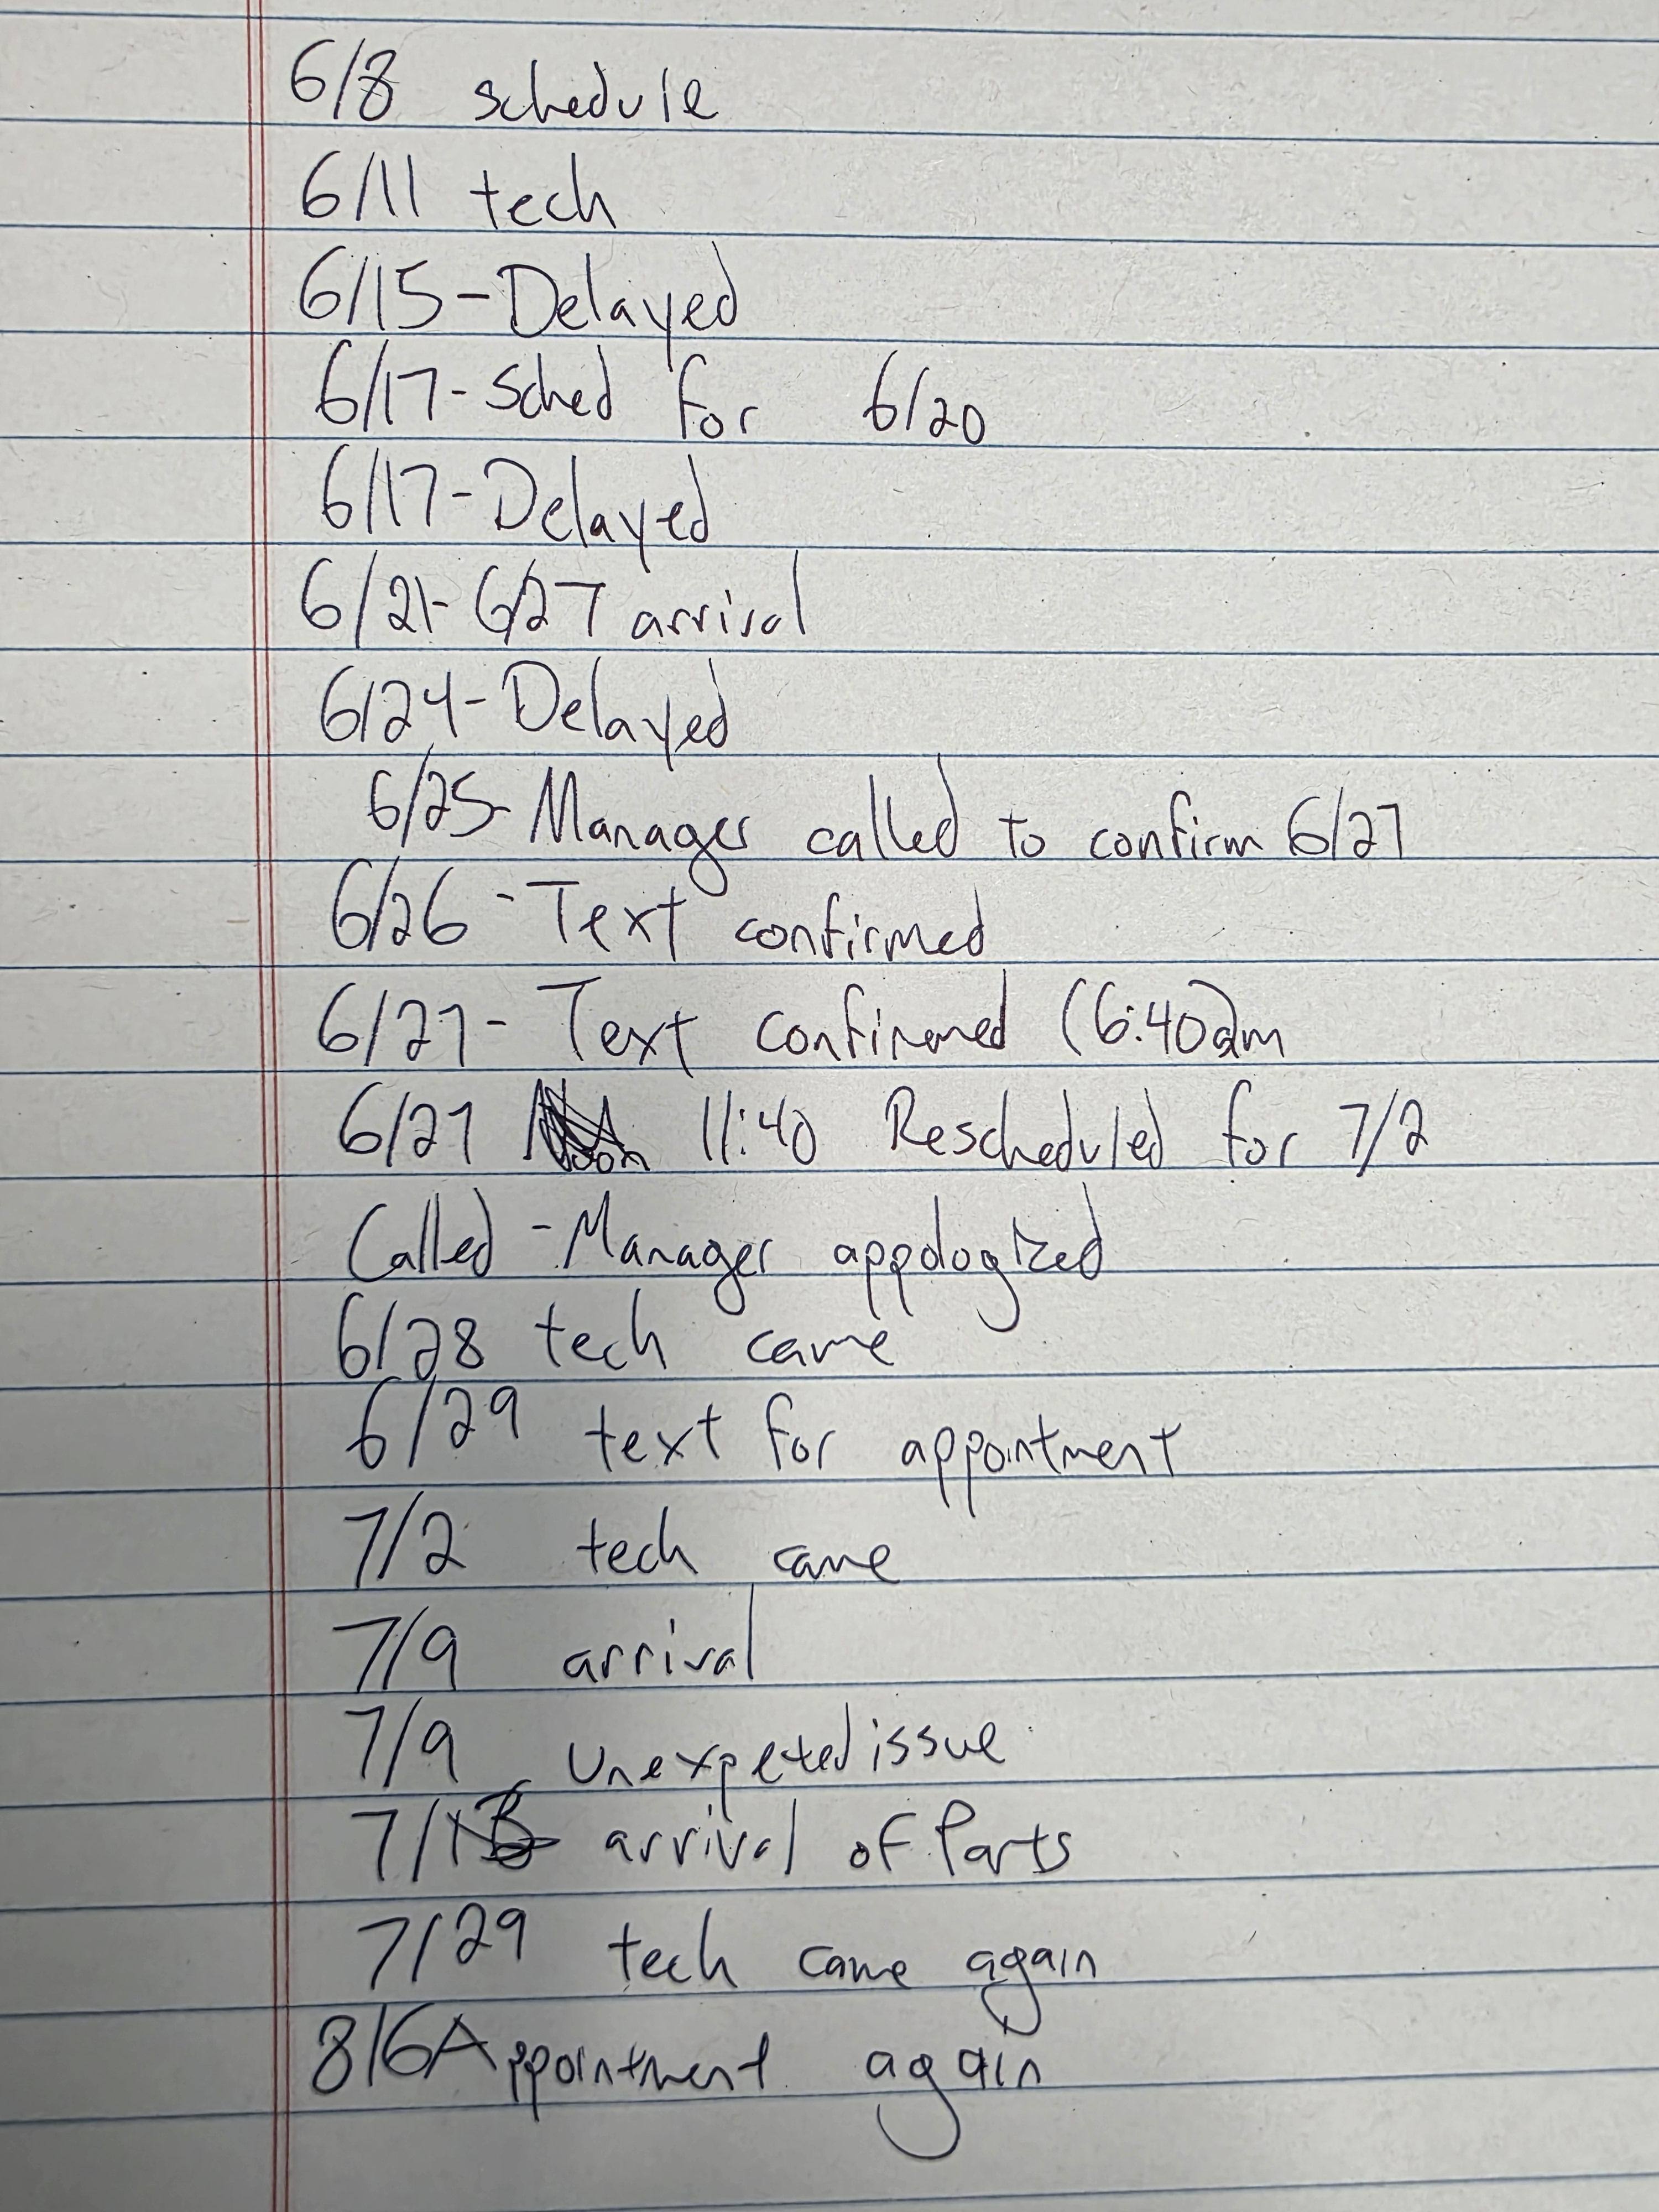 6/8 schedule
6/11 tech
6/15-Delayed
6/17-Sched for 6/20
6/17-Delayed
6/21-6/27 arrival
6/24-Delayed
6/25-Manager called to confirm 6/27
6/26-Text confirmed
6/27-Text confirmed (6:40)am
6/27 11:40 Rescheduled for 7/2
Called-Manager appologized
6/28 tech came
6/29 text for appointment
7/2 tech came
7/9 arrival
7/9 unexpeted issue
arrival of Parts
7/29 tech came again
8/6 Appointment again